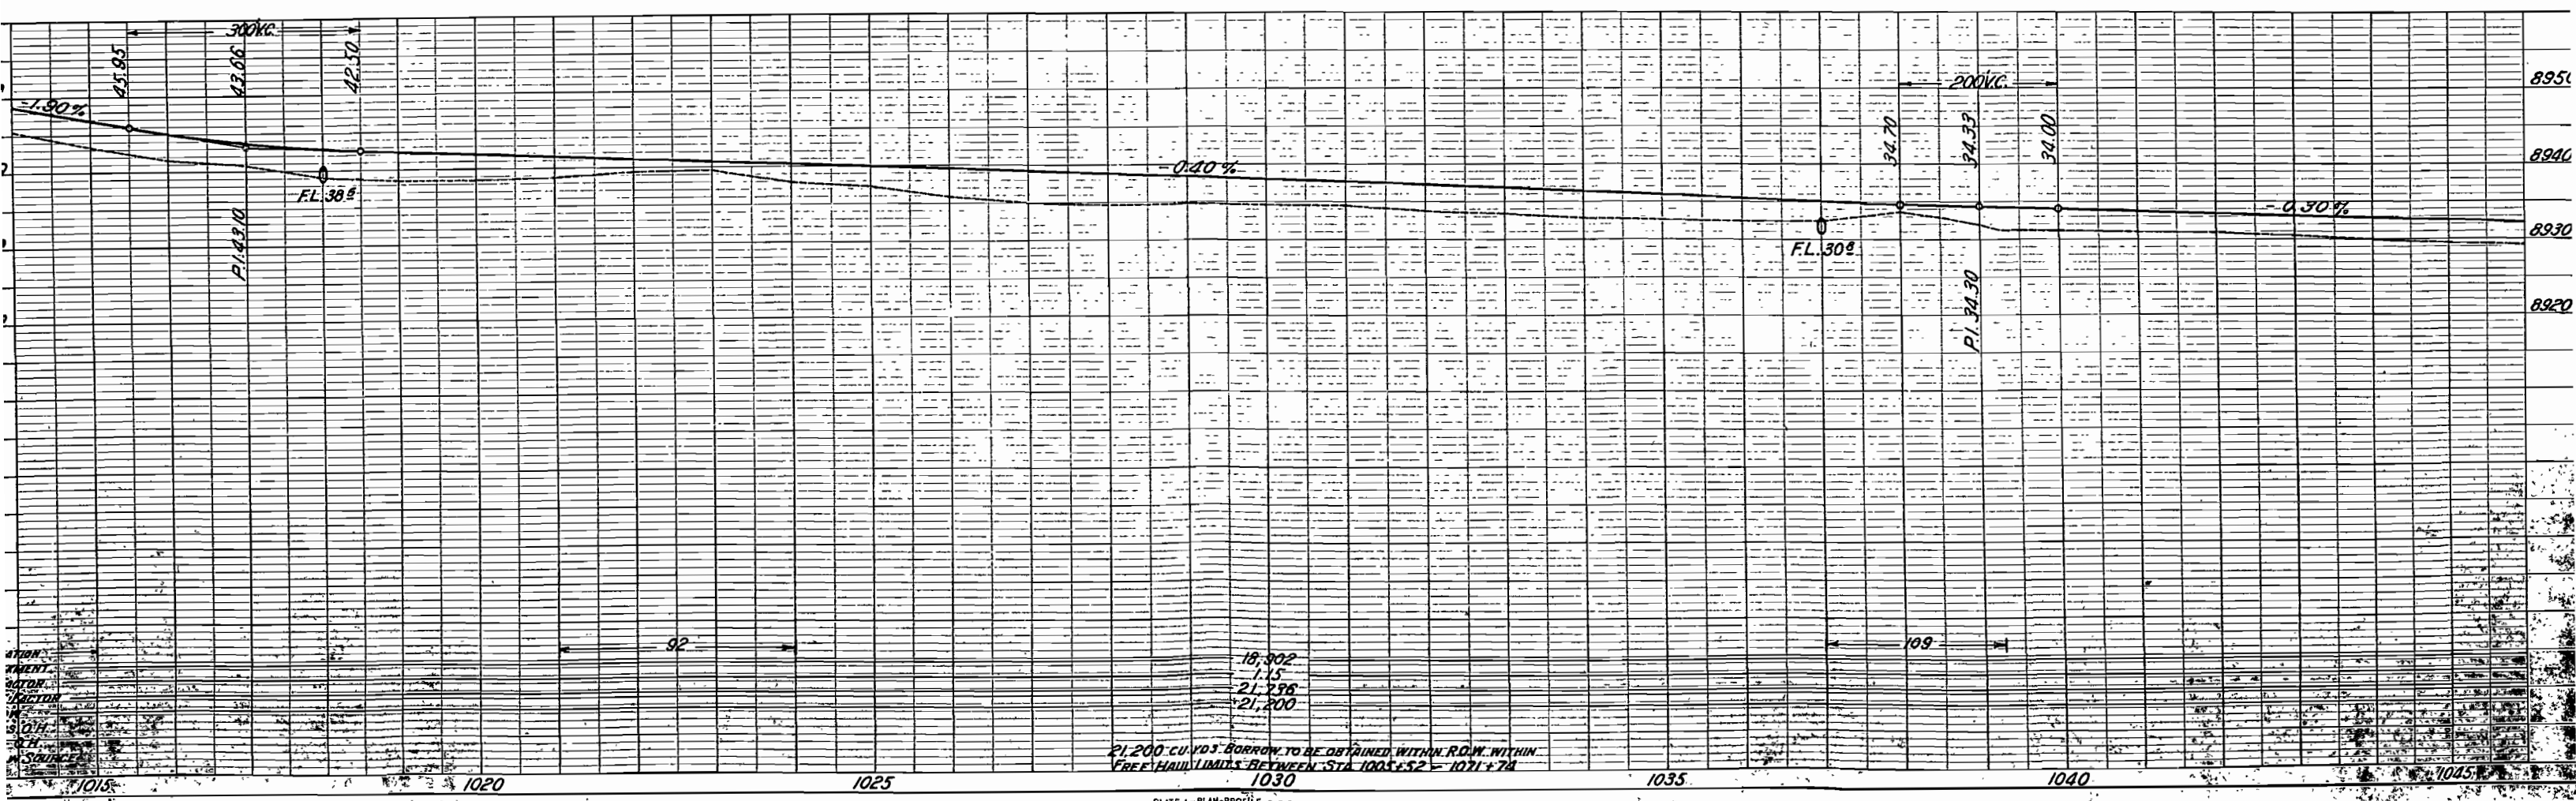 300'V.C.
45.95
43.66
42.50
-1.90%
F.L. 38⁶
P.I. 43.10
-0.40%
200'V.C.
34.70
34.33
34.00
-0.30%
F.L. 30⁸
P.I. 34.30
8950
8940
8930
8920
92
109
18,902
1.15
+21,200
21,200 CU. YDS. BORROW TO BE OBTAINED WITHIN R.O.W. WITHIN
FREE HAUL LIMITS BETWEEN STA. 1005+52 - 1071+74
1015
1020
1025
1030
1035
1040
1045